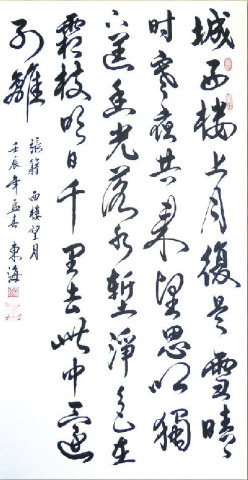 城西樓上月復是雪晴
時寒夜共來望思鄉獨
下遲幽光落水塹淨色在
霜枝明日千里去此中還
別離
張籍 西樓望月
壬辰年孟春 東海